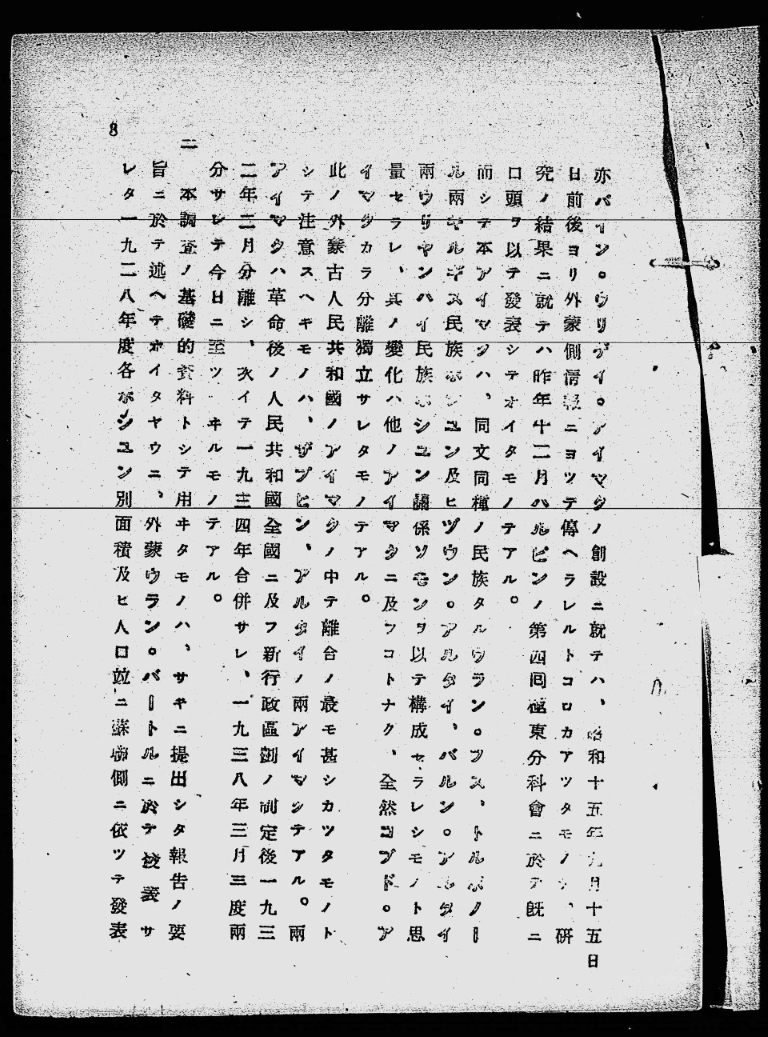 亦バイン。ウリゲイ。アイマクノ創設ニ就テハ、昭和十五年九月十五日
日前後ヨリ外蒙側情報ニヨツテ傳ヘラレルトコロカアツタモノヽ、研
究ノ結果ニ就テハ昨年十二月ハルビンノ第四囘極東分科會ニ於テ既ニ
口頭ヲ以テ發表シテオイタモノテアル。
而シテ本アイマクハ、同文同種ノ民族タルウラン。フス、トルボノー
ル兩キルギス民族ホシユン及ヒヅウン。アルタイ、バルン。アルタイ
兩ウリヤンハイ民族ホシユン關係ソモンヲ以テ構成セラレシモノト思
量セラレ、其ノ變化ハ他ノアイマクニ及フコトナク、全然コブド。ア
イマクカラ分離獨立サレタモノテアル。
此ノ外蒙古人民共和國ノアイマクノ中テ離合ノ最モ甚シカツタモノト
シテ注意スヘキモノハ、ザブヒン、アルタイノ兩アイマクテアル。兩
アイマクハ革命後ノ人民共和國全國ニ及フ新行政區劃ノ制定後一九三
二年二月分離シ、次イテ一九三四年合併サレ、一九三八年三月三度兩
分サレテ今日ニ至ツ ヰルモノテアル。
二 本調査ノ基礎的資料トシテ用ヰタモノハ、サキニ提出シタ報告ノ要
旨ニ於テ述ヘテオイタヤウニ、外蒙ウラン。バートルニ於テ發表サ
レタ一九二八年度各ホシユン別面積及ヒ人口竝ニ蘇聯側ニ依ツテ發表
8